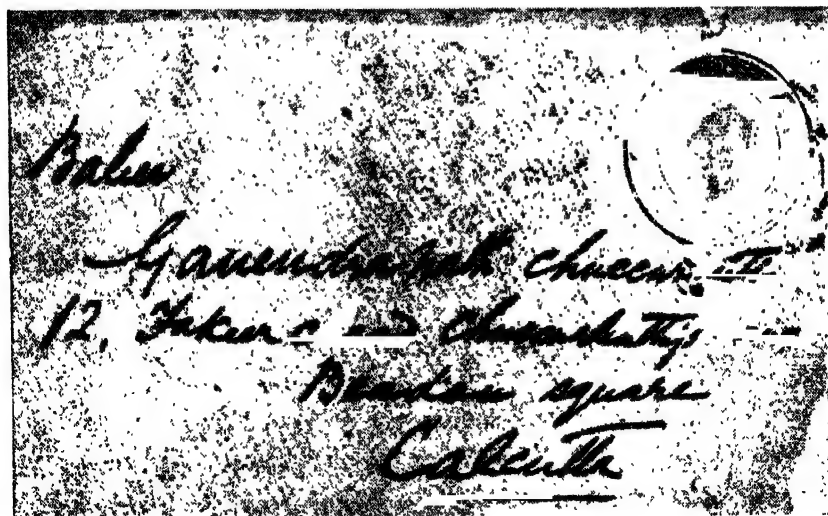 Babu
Ganendranath Chuccer
12, Fakeer Chuckerbutty's
Beadon square
Calcutta